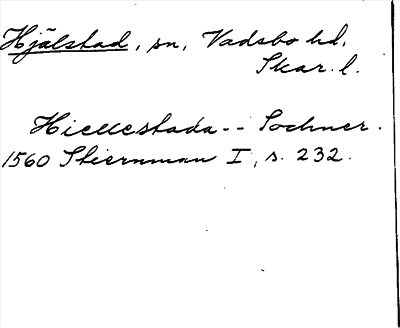 Hjälstad, sn, Vadsbo hd,
Skar. l.
Hiellestada -- Sochner.
1560 Stiernman I, s. 232.